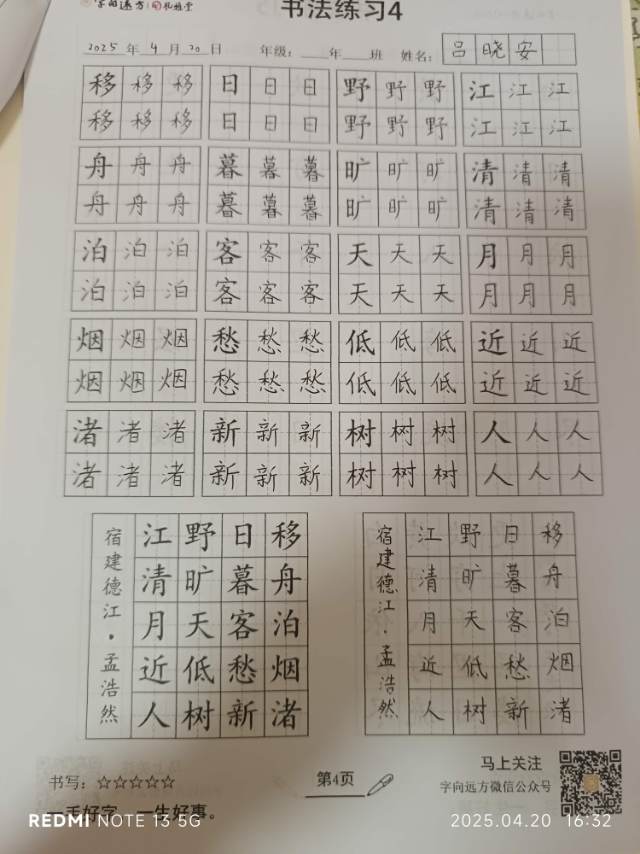 字向远方 礼雅堂
书法练习4
2025 年 4 月 20 日 年级：___年___班 姓名： 吕晓安
移移移 日日日 野野野 江江江
移移移 日日日 野野野 江江江
舟舟舟 暮暮暮 旷旷旷 清清清
舟舟舟 暮暮暮 旷旷旷 清清清
泊泊泊 客客客 天天天 月月月
泊泊泊 客客客 天天天 月月月
烟烟烟 愁愁愁 低低低 近近近
烟烟烟 愁愁愁 低低低 近近近
渚渚渚 新新新 树树树 人人人
渚渚渚 新新新 树树树 人人人
宿建德江·孟浩然
江野日移
清旷暮舟
月天客泊
近低愁烟
人树新渚
宿建德江·孟浩然
江野日移
清旷暮舟
月天客泊
近低愁烟
人树新渚
书写：☆☆☆☆☆
第4页
马上关注
字向远方微信公众号
一手好字，一生好事。
REDMI NOTE 13 5G
2025.04.20 16:32